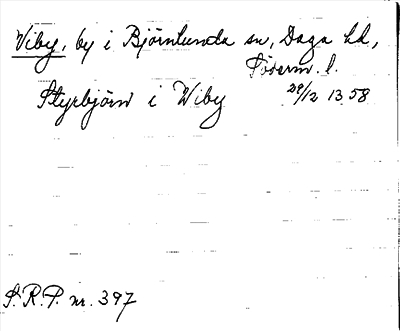 Viby, by i Björnlunda sn, Daga hd,
Söderm. l.
Styrbjörn i Wiby 29/12 1358
S.R.P. nr. 397